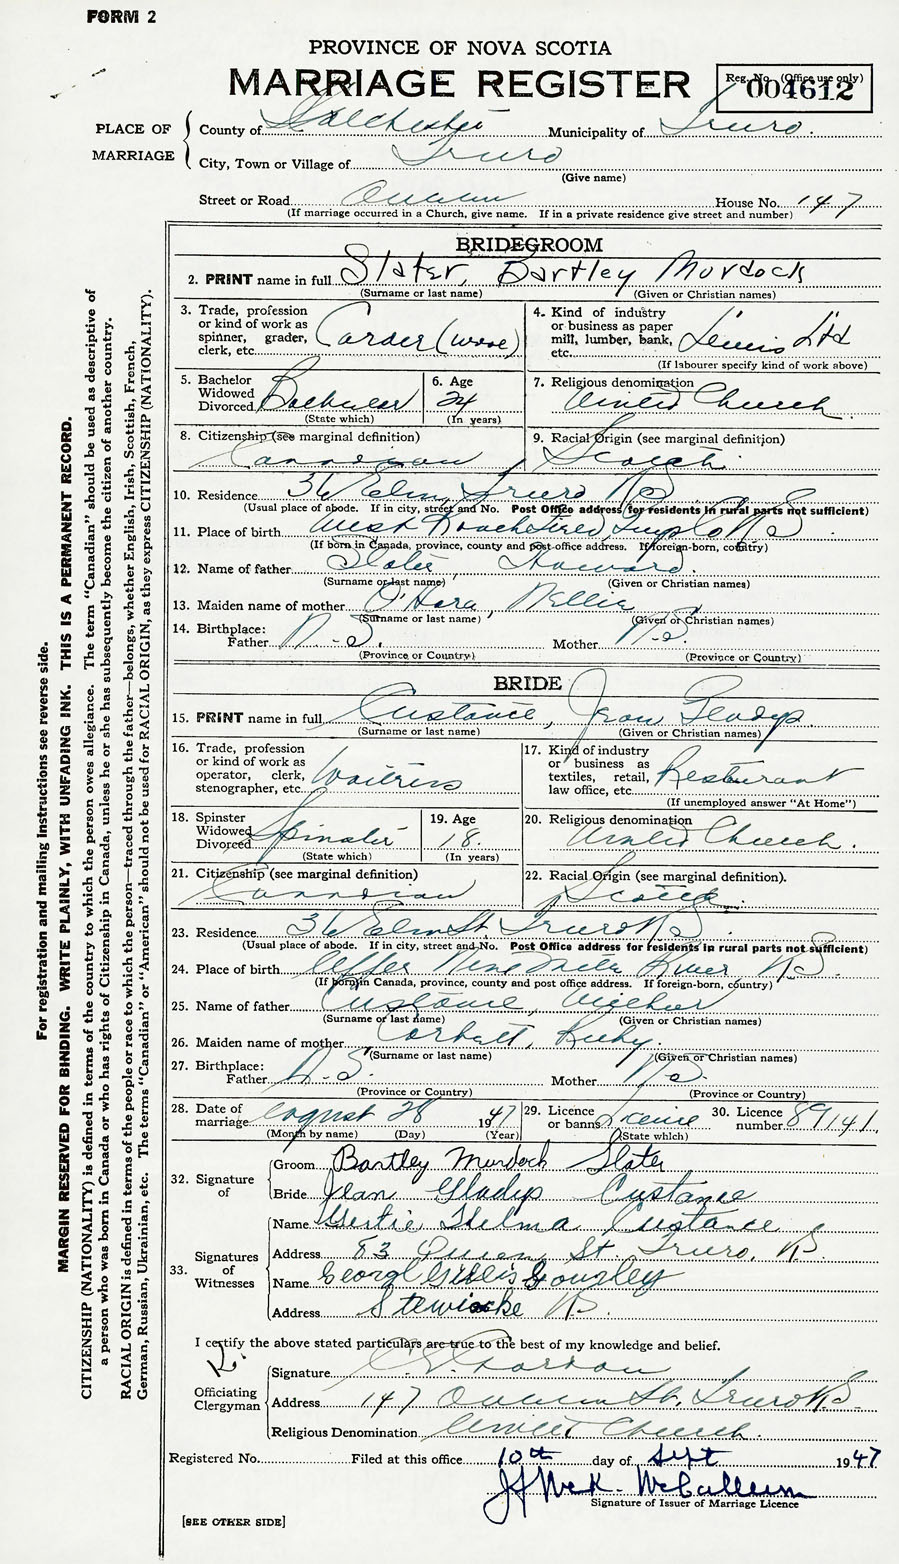 FORM 2
PROVINCE OF NOVA SCOTIA
MARRIAGE REGISTER
Reg. No. (Office use only)
004612
PLACE OF MARRIAGE
County of Colchester Municipality of Truro.
City, Town or Village of Truro
(Give name)
Street or Road Queen House No. 147
(If marriage occurred in a Church, give name. If in a private residence give street and number)
BRIDEGROOM
2. PRINT name in full Slater, Bartley Murdock
(Surname or last name) (Given or Christian names)
3. Trade, profession or kind of work as spinner, grader, clerk, etc. Carder (wool)
4. Kind of industry or business as paper mill, lumber, bank, etc. Lewis Ltd
(If labourer specify kind of work above)
5. Bachelor Widowed Divorced Bachelor
(State which)
6. Age 24
(In years)
7. Religious denomination United Church.
8. Citizenship (see marginal definition) Canadian
9. Racial Origin (see marginal definition) Scotch
10. Residence 36 Elm, Truro NS
(Usual place of abode. If in city, street and No. Post Office address for residents in rural parts not sufficient)
11. Place of birth West N S
(If born in Canada, province, county and post-office address. If foreign-born, country)
12. Name of father Slater Howard.
(Surname or last name) (Given or Christian names)
13. Maiden name of mother O'Hara, Nellie
(Surname or last name) (Given or Christian names)
14. Birthplace: Father N.S. Mother N.S.
(Province or Country) (Province or Country)
BRIDE
15. PRINT name in full Custance, Jean Gladys
(Surname or last name) (Given or Christian names)
16. Trade, profession or kind of work as operator, clerk, stenographer, etc. Waitress
17. Kind of industry or business as textiles, retail, law office, etc. Resturant
(If unemployed answer "At Home")
18. Spinster Widowed Divorced Spinster
(State which)
19. Age 18.
(In years)
20. Religious denomination United Church.
21. Citizenship (see marginal definition) Canadian
22. Racial Origin (see marginal definition). Scotch
23. Residence 36 Elm St Truro N S
(Usual place of abode. If in city, street and No. Post Office address for residents in rural parts not sufficient)
24. Place of birth Upper Nine Mile River N.S.
(If born in Canada, province, county and post office address. If foreign-born, country)
25. Name of father Custance,
(Surname or last name) (Given or Christian names)
26. Maiden name of mother Corbett, Ruby.
(Surname or last name) (Given or Christian names)
27. Birthplace: Father N.S. Mother N S.
(Province or Country) (Province or Country)
28. Date of marriage August 28 1947
(Month by name) (Day) (Year)
29. Licence or banns License
(State which)
30. Licence number 89141
32. Signature of
Groom Bartley Murdock Slater
Bride Jean Gladys Custance
33. Signatures of Witnesses
Name Gertie Thelma Custance
Address 83 Queen St. Truro, NS
Name George Gillis
Address Stewiacke NS.
I certify the above stated particulars are true to the best of my knowledge and belief.
Officiating Clergyman
Signature
Address 147 Queen St. Truro N.S.
Religious Denomination United Church.
Registered No. Filed at this office 10th day of Sept 1947
McCallum
Signature of Issuer of Marriage Licence
[SEE OTHER SIDE]
For registration and mailing instructions see reverse side.
MARGIN RESERVED FOR BINDING. WRITE PLAINLY, WITH UNFADING INK. THIS IS A PERMANENT RECORD.
CITIZENSHIP (NATIONALITY) is defined in terms of the country to which the person owes allegiance. The term "Canadian" should be used as descriptive of
a person who was born in Canada or who has rights of Citizenship in Canada, unless he or she has subsequently become the citizen of another country.
RACIAL ORIGIN is defined in terms of the people or race to which the person—traced through the father—belongs, whether English, Irish, Scottish, French,
German, Russian, Ukrainian, etc. The terms "Canadian" or "American" should not be used for RACIAL ORIGIN, as they express CITIZENSHIP (NATIONALITY).